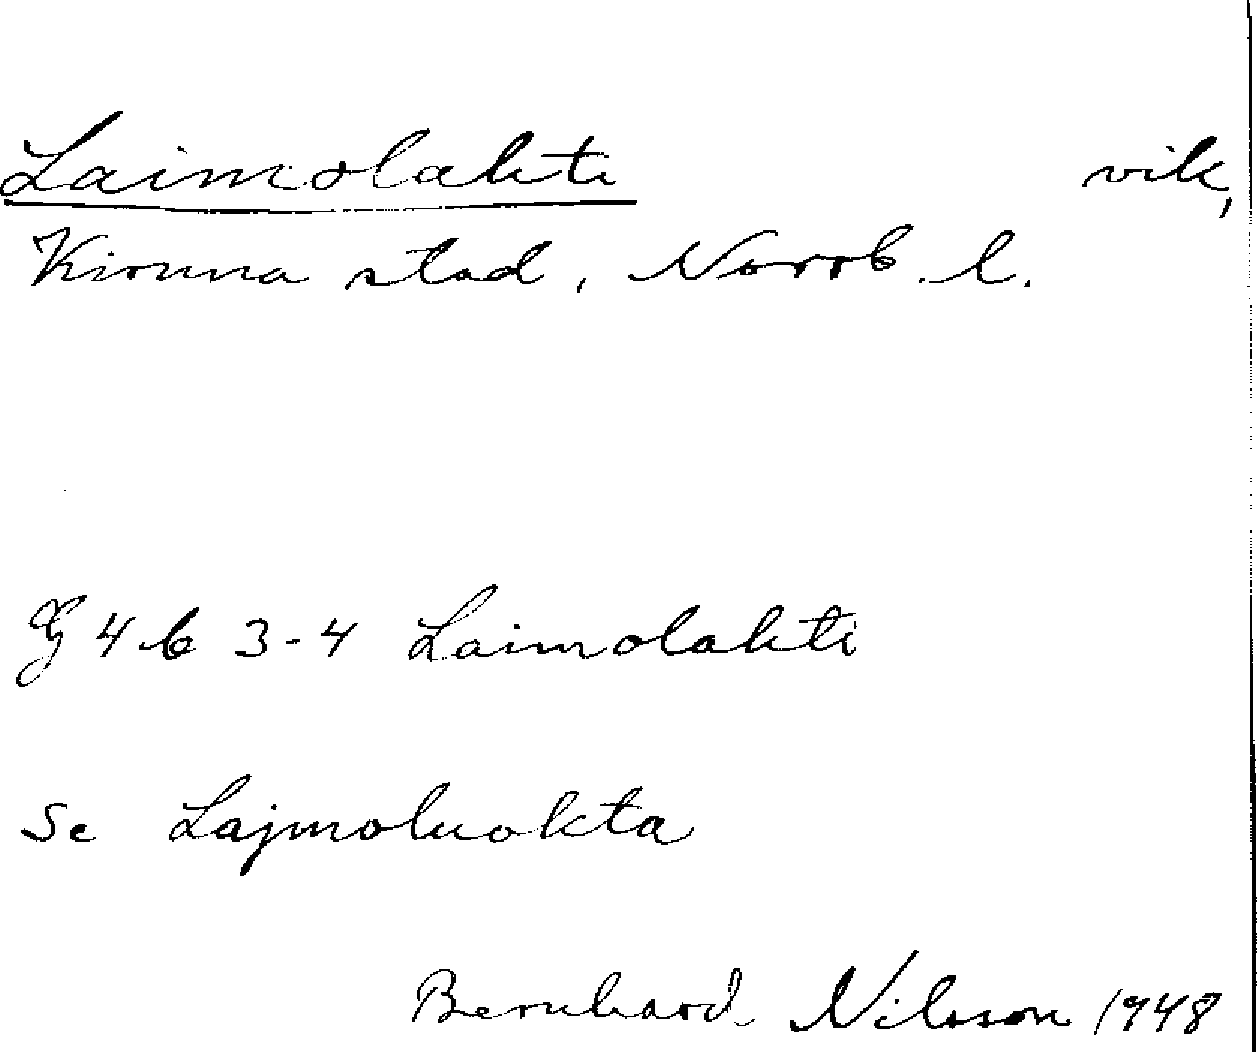 Laimolahti vik,
Kiruna stad, Norrb. l.
G 4 b 3-4 Laimolahti
Se Lajmoluokta
Bernhard Nilsson 1948